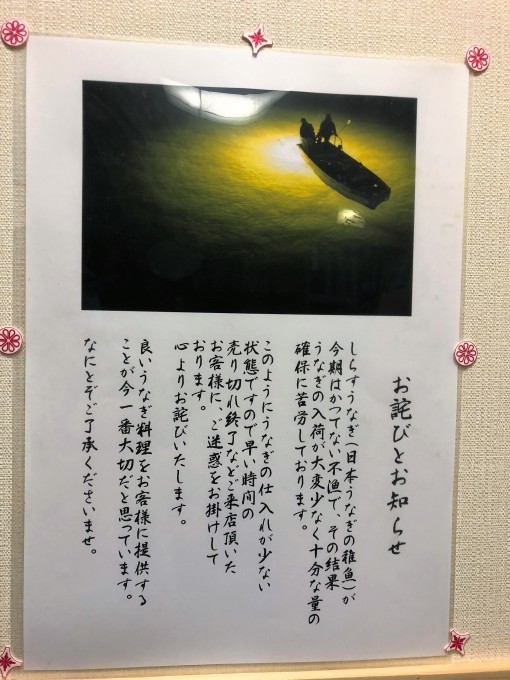 お詫びとお知らせ
しらすうなぎ(日本うなぎの稚魚)が
今期はかつてない不漁で、その結果
うなぎの入荷が大変少なく十分な量の
確保に苦労しております。
このようにうなぎの仕入れが少ない
状態ですので早い時間の
売り切れ終了などご来店頂いた
お客様に、ご迷惑をお掛けして
おります。
心よりお詫びいたします。
良いうなぎ料理をお客様に提供する
ことが今一番大切だと思っています。
なにとぞご了承くださいませ。